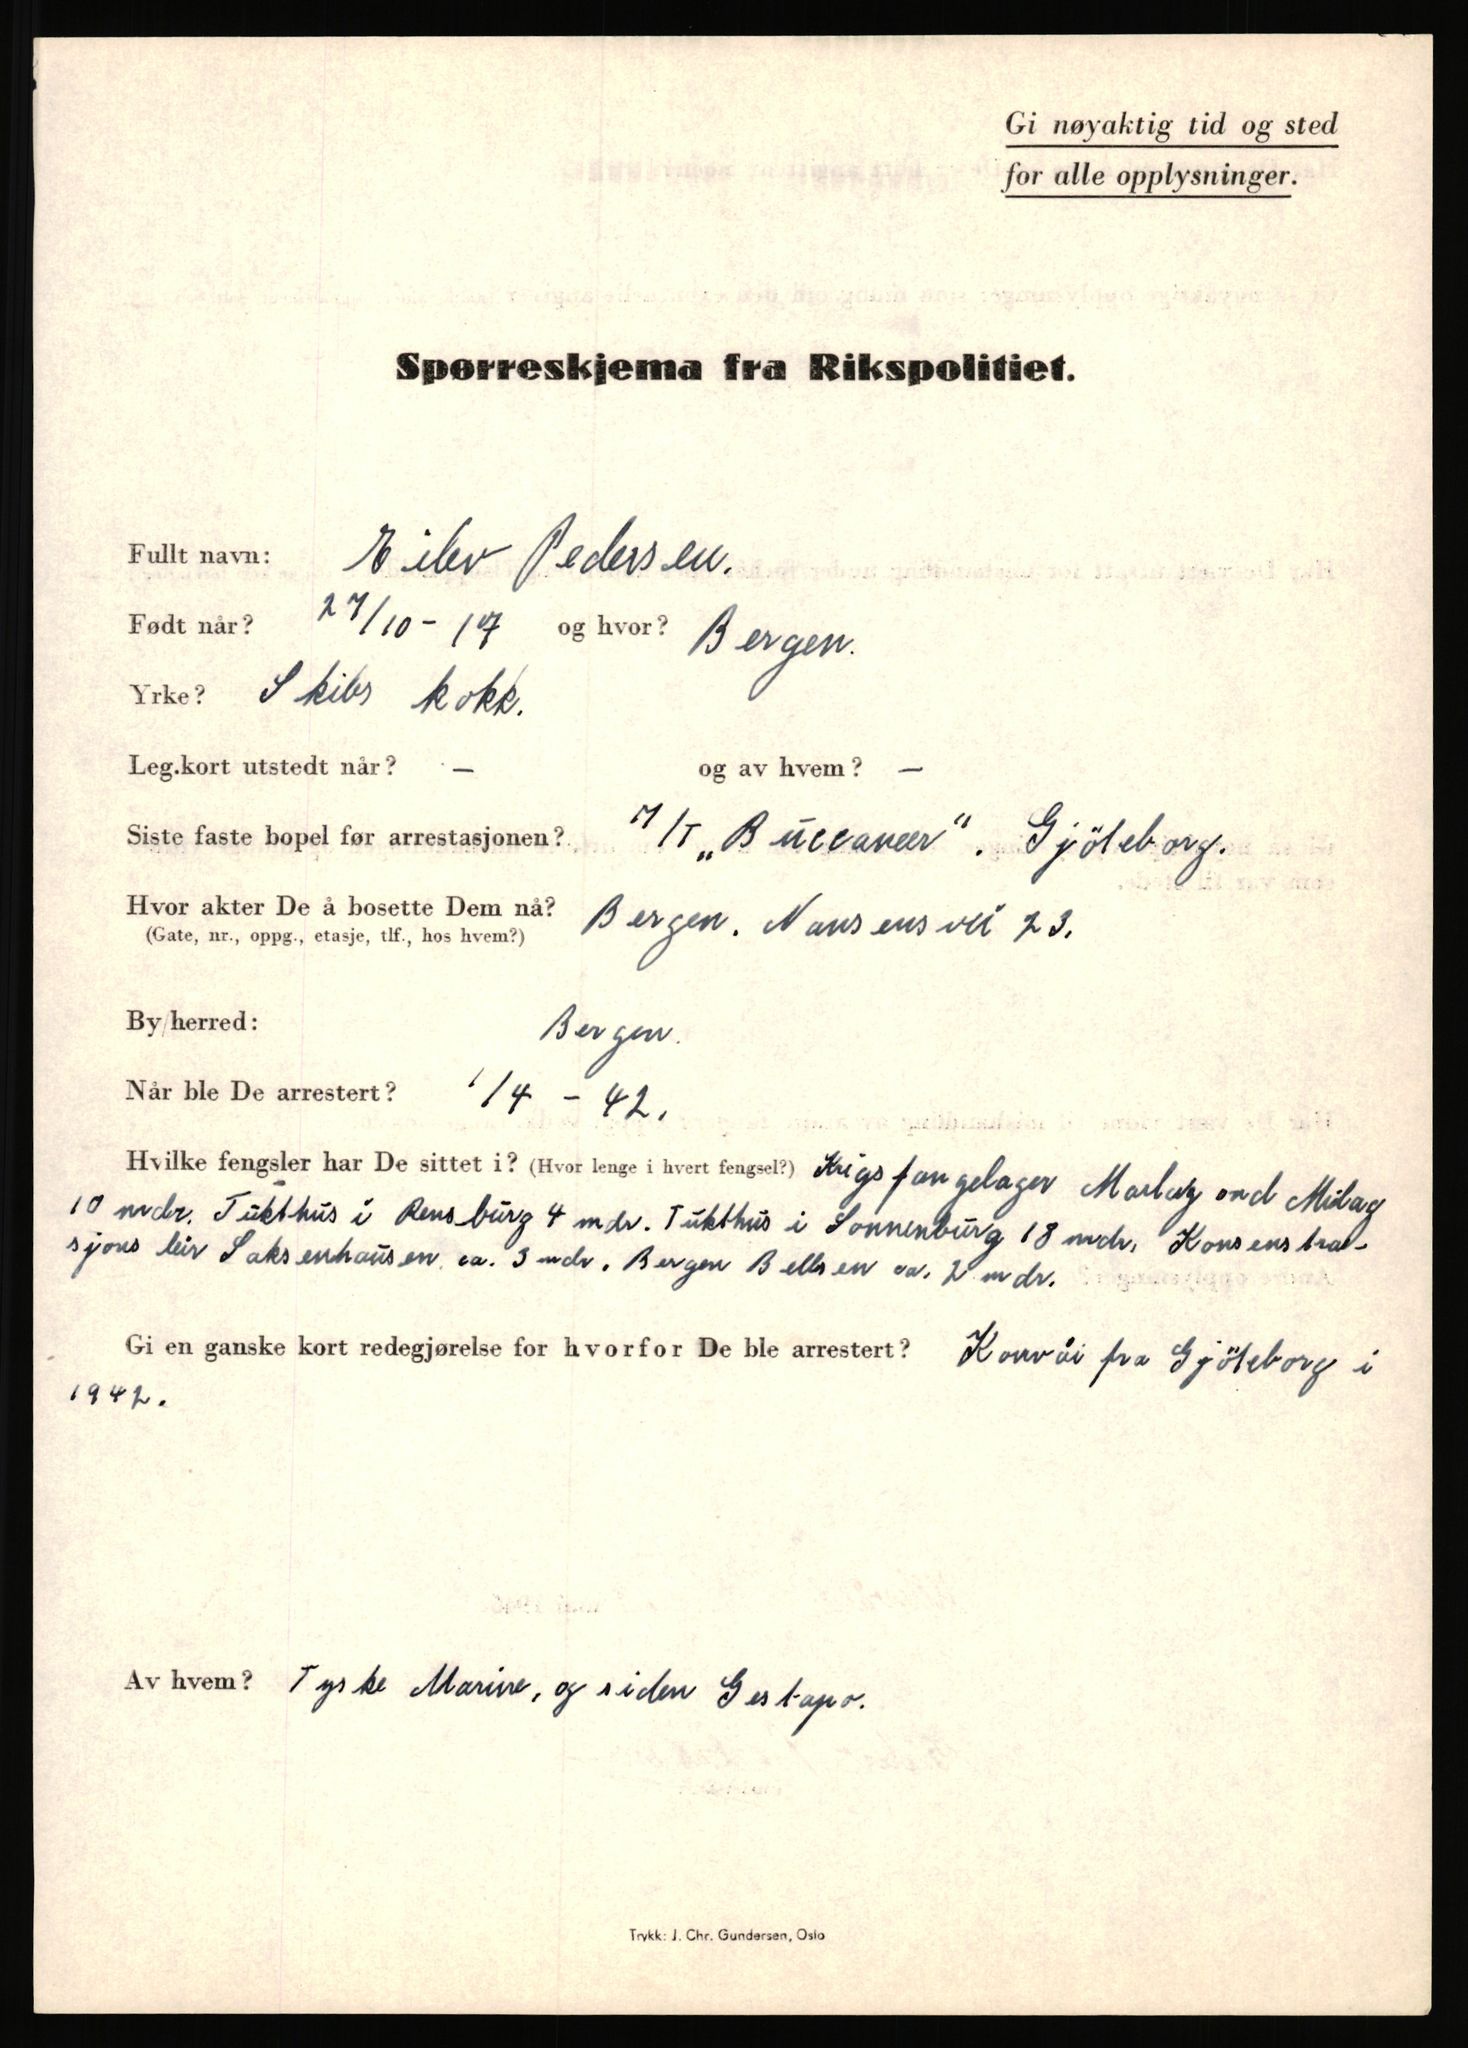 Gi nøyaktig tid og sted
for alle opplysninger.
Spørreskjema fra Rikspolitiet.
Fullt navn: Eilev Pedersen.
Født når? 27/10 - 17 og hvor? Bergen.
Yrke? Skibs kokk.
Leg.kort utstedt når? — og av hvem? —
Siste faste bopel før arrestasjonen? M/T „Buccaneer“. Gjöteborg.
Hvor akter De å bosette Dem nå? Bergen. Nansens vei 23.
(Gate, nr., oppg., etasje, tlf., hos hvem?)
By/herred: Bergen.
Når ble De arrestert? 1/4 - 42.
Hvilke fengsler har De sittet i? (Hvor lenge i hvert fengsel?) Krigsfangelager Marlag ond Milag
10 mdr. Tukthus i Rensburg 4 mdr. Tukthus i Sonnenburg 18 mdr. Konsentra-
sjons leir Saksenhausen ca. 3 mdr. Bergen Bellsen ca. 2 mdr.
Gi en ganske kort redegjørelse for hvorfor De ble arrestert? Konvoi fra Gjöteborg i
1942.
Av hvem? Tyske Marine, og siden Gestapo.
Trykk: J. Chr. Gundersen, Oslo